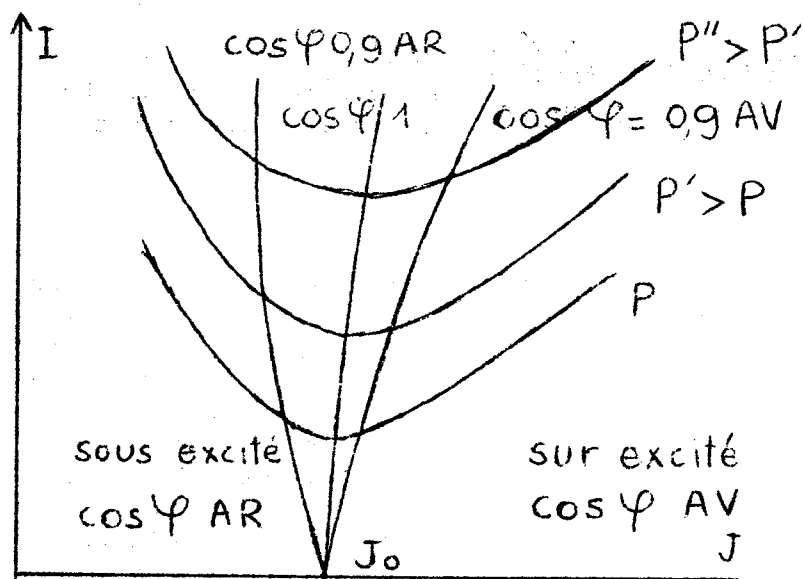 I
cos φ 0,9 AR
P" > P'
cos φ 1
cos φ = 0,9 AV
P' > P
P
sous excité
cos φ AR
sur excité
cos φ AV
Jo
J